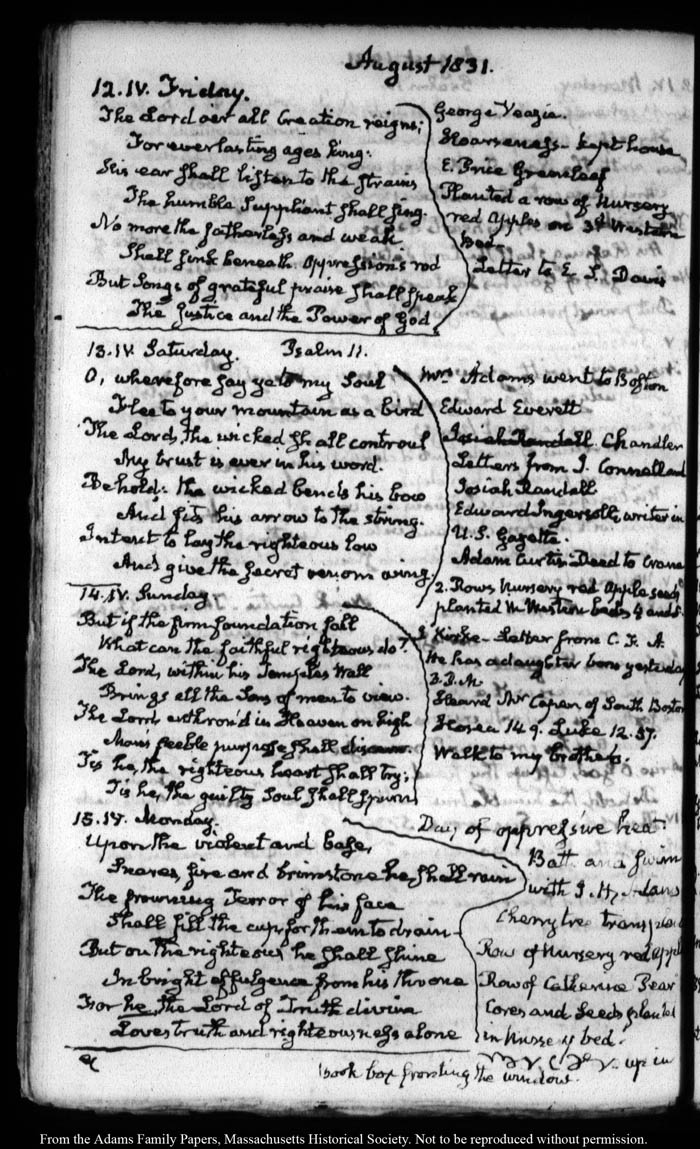 August 1831.
12. IV. Friday.
The Lord o'er all Creation reigns;
For everlasting ages king:
His ear shall listen to the strains
The humble Suppliant shall sing.
No more the fatherless and weak
Shall sink beneath oppression's rod
But Songs of grateful praise shall speak
The Justice and the Power of God.
George Veazie.
Hoarseness- kept house
E. Price Greenleaf
Planted a row of Nursery
red apples on 3d Western
bed-
Letter to E. S. Davis
13. IV. Saturday. Psalm 11.
O, wherefore say ye to my Soul
Flee to your mountain as a bird
The Lord, the wicked shall controul
My trust is ever in his word.
Behold: the wicked bends his bow
And fits his arrow to the string.
Intent to lay the righteous low
And give the secret venom wing
Mrs Adams went to Boston
Edward Everett
Josiah Randall. Chandler
Letters from J. Connelland
Josiah Randall
Edward Ingersoll, writer in
U.S. Gazette.
Adam Curtis- Deed to Crane
2. Rows Nursery red Apple seeds
planted in Western beds 4 and 5.
14. IV. Sunday
But if the firm foundation fall
What can the faithful righteous do?
The Lord, within his Temple's Wall
Brings all the Sons of men to view.
The Lord, enthron'd in Heaven on high
Man's feeble purpose shall
Tis he, the righteous heart shall try;
Tis he, the guilty Soul shall spurn
Kirke- Letter from C. F. A.
He has a daughter born yesterday
B.B.M.
Heard Mr Capen of South Boston
Hosea 14 9. Luke 12. 57.
Walk to my brother's.
15. IV. Monday.
Upon the violent and base,
Snares, fire and brimstone he shall rain
The frowning Terror of his face
Shall fill the cup for them to drain-
But on the righteous he shall shine
In bright effulgence from his throne
For he, the Lord of Truth divine
Loves truth and righteousness alone
Day of oppressive heat
Bath and swim
with J. H. Adams
Cherry tree
Row of Nursery red
Row of Catherine Pear
Cores and Seeds planted
in Nursery bed.
up in
book box fronting the window.
From the Adams Family Papers, Massachusetts Historical Society. Not to be reproduced without permission.